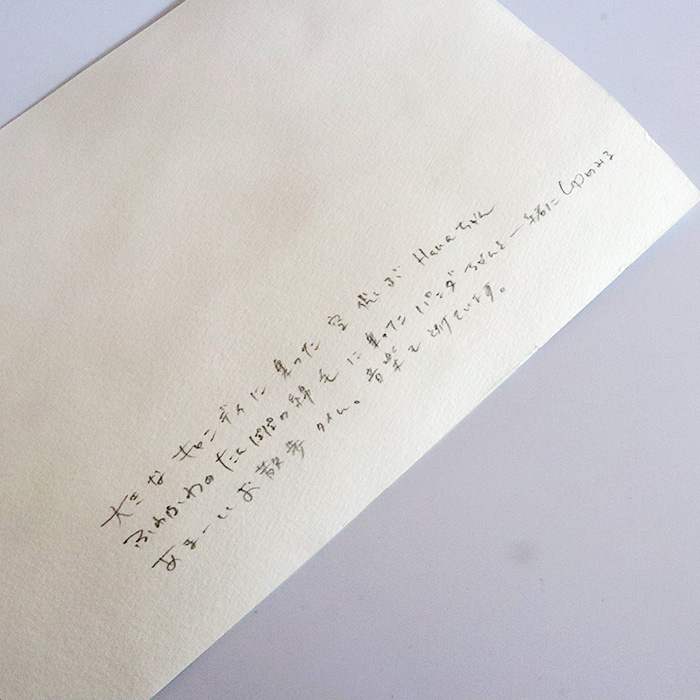 大きなキャンディに乗った空飛ぶHanaちゃん
ふわふわのたんぽぽの綿毛に乗ったパンダちゃんと一緒に
あまーいお散歩タイム。音楽を
ています。